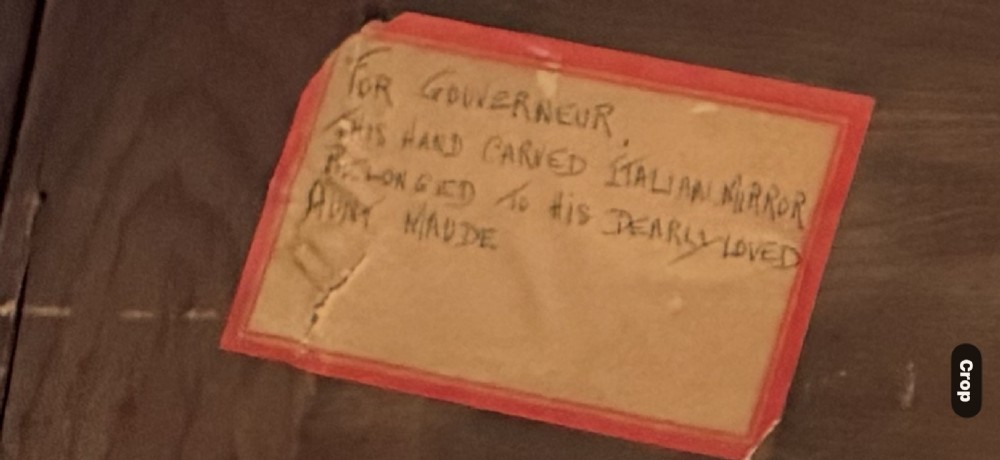 FOR GOUVERNEUR.
THIS HAND CARVED ITALIAN MIRROR
BELONGED TO HIS DEARLY LOVED
AUNT MAUDE
Crop